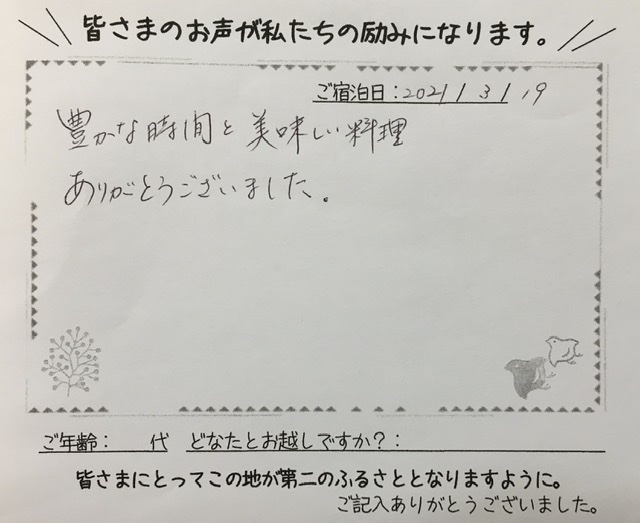 皆さまのお声が私たちの励みになります。
ご宿泊日：2021/3/19
豊かな時間と美味しい料理
ありがとうございました。
ご年齢：　　代　どなたとお越しですか？：
皆さまにとってこの地が第二のふるさととなりますように。
ご記入ありがとうございました。